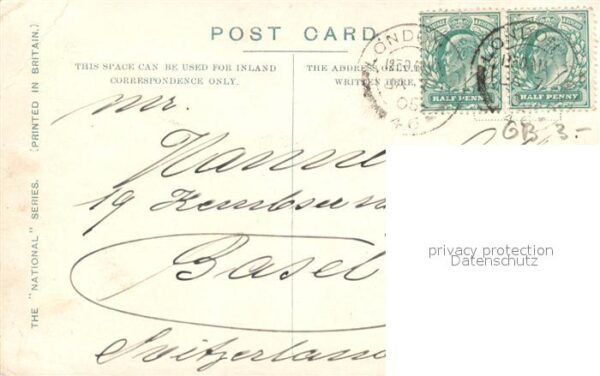 POST CARD
THIS SPACE CAN BE USED FOR INLAND
CORRESPONDENCE ONLY.
THE ADDRESS ONLY
WRITTEN HERE.
THE "NATIONAL" SERIES. (PRINTED IN BRITAIN.)
LONDON
LONDON
HALF PENNY
HALF PENNY
GB 3.-
Mr.
19
Basel
Switzerland
privacy protection
Datenschutz